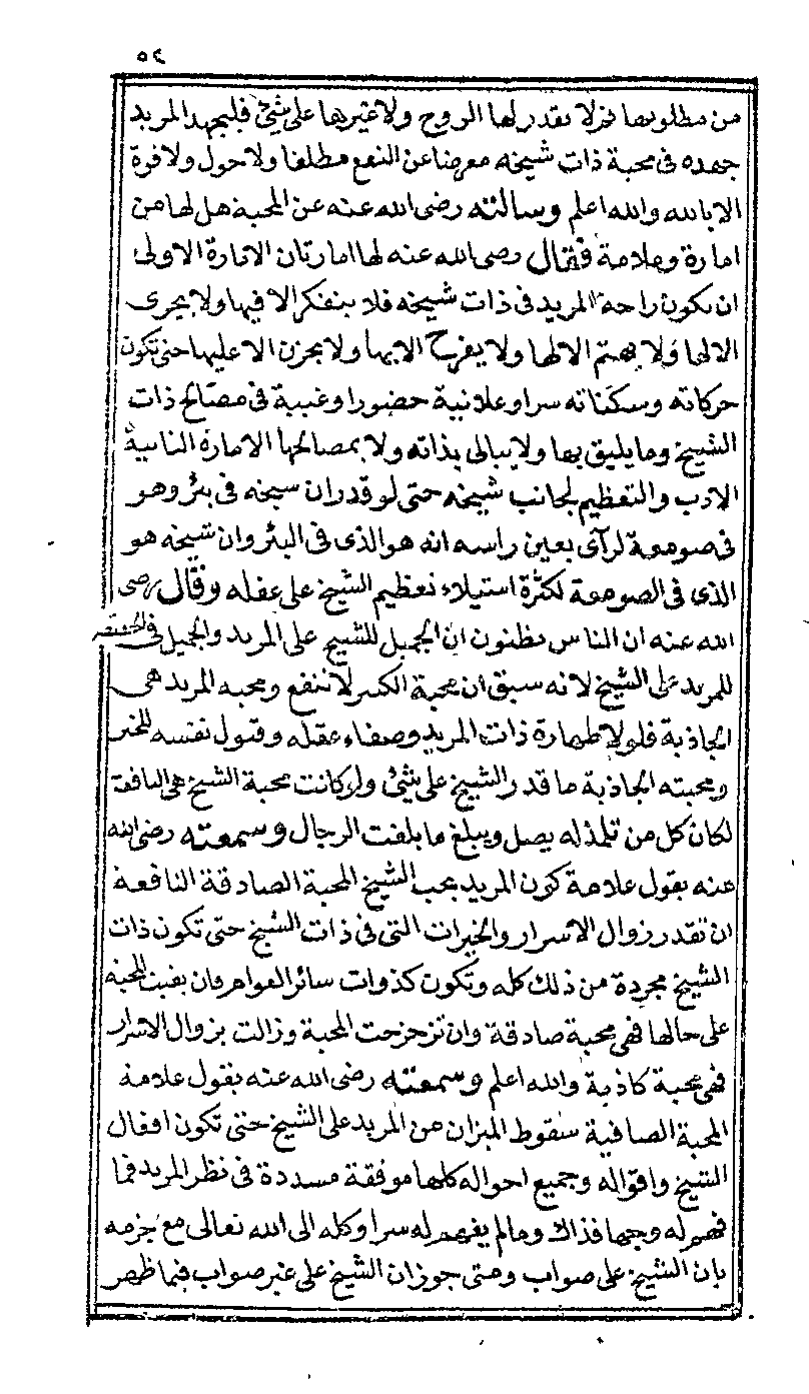 ٥٤
من مطلوبها فلا يقدر لها الروح ولا غيرها على شئ فليجهد المريد
جهده فى محبة ذات شيخه معرضا عن النفع مطلقا ولا حول ولا قوة
الا بالله والله اعلم وسالته رضى الله عنه عن المحبة هل لها من
امارة وعلامة فقال رضى الله عنه لها امارتان الامارة الاولى
ان يكون راحة المريد فى ذات شيخه فلا يتفكر الا فيها ولا يجرى
الا لها ولا يهتم الا لها ولا يفرح الا بها ولا يحزن الا عليها حتى تكون
حركاته وسكناته سرا وعلانية حضورا وغيبة فى مصالح ذات
الشيخ وما يليق بها ولا يبالى بذاته ولا بمصالحها الامارة الثانية
الادب والتعظيم لجانب شيخه حتى لو قدر ان شيخه فى بئر وهو
فى صومعة لرآى بعين راسه انه هو الذى فى البئر وان شيخه هو
الذى فى الصومعة لكثرة استيلاء تعظيم الشيخ على عقله وقال رضى
الله عنه ان الناس يظنون ان الجميل للشيخ على المريد والجميل فى الحقيقة
للمريد على الشيخ لانه سبق ان محبة الكبير لا تنفع ومحبة المريد هى
الجاذبة فلولا طهارة ذات المريد وصفاء عقله وقبول نفسه للخير
ومحبته الجاذبة ما قدر الشيخ على شئ ولو كانت محبة الشيخ هى النافعة
لكان كل من تلمذ له يصل ويبلغ ما بلغت الرجال وسمعته رضى الله
عنه يقول علامة كون المريد يحب الشيخ المحبة الصادقة النافعة
ان تقدر زوال الاسرار والخيرات التى فى ذات الشيخ حتى تكون ذات
الشيخ مجردة من ذلك كله وتكون كذوات سائر العوام فان بقيت المحبة
على حالها فهى محبة صادقة وان تزحزحت المحبة وزالت بزوال الاسرار
فهى محبة كاذبة والله اعلم وسمعته رضى الله عنه يقول علامة
المحبة الصافية سقوط الميزان من المريد على الشيخ حتى تكون افعال
الشيخ واقواله وجميع احواله كلها موفقة مسددة فى نظر المريد فما
فهم له وجها فذاك وما لم يفهم له سرا وكله الى الله تعالى مع جزمه
بان الشيخ على صواب ومتى جوز ان الشيخ على غير صواب فيما ظهر